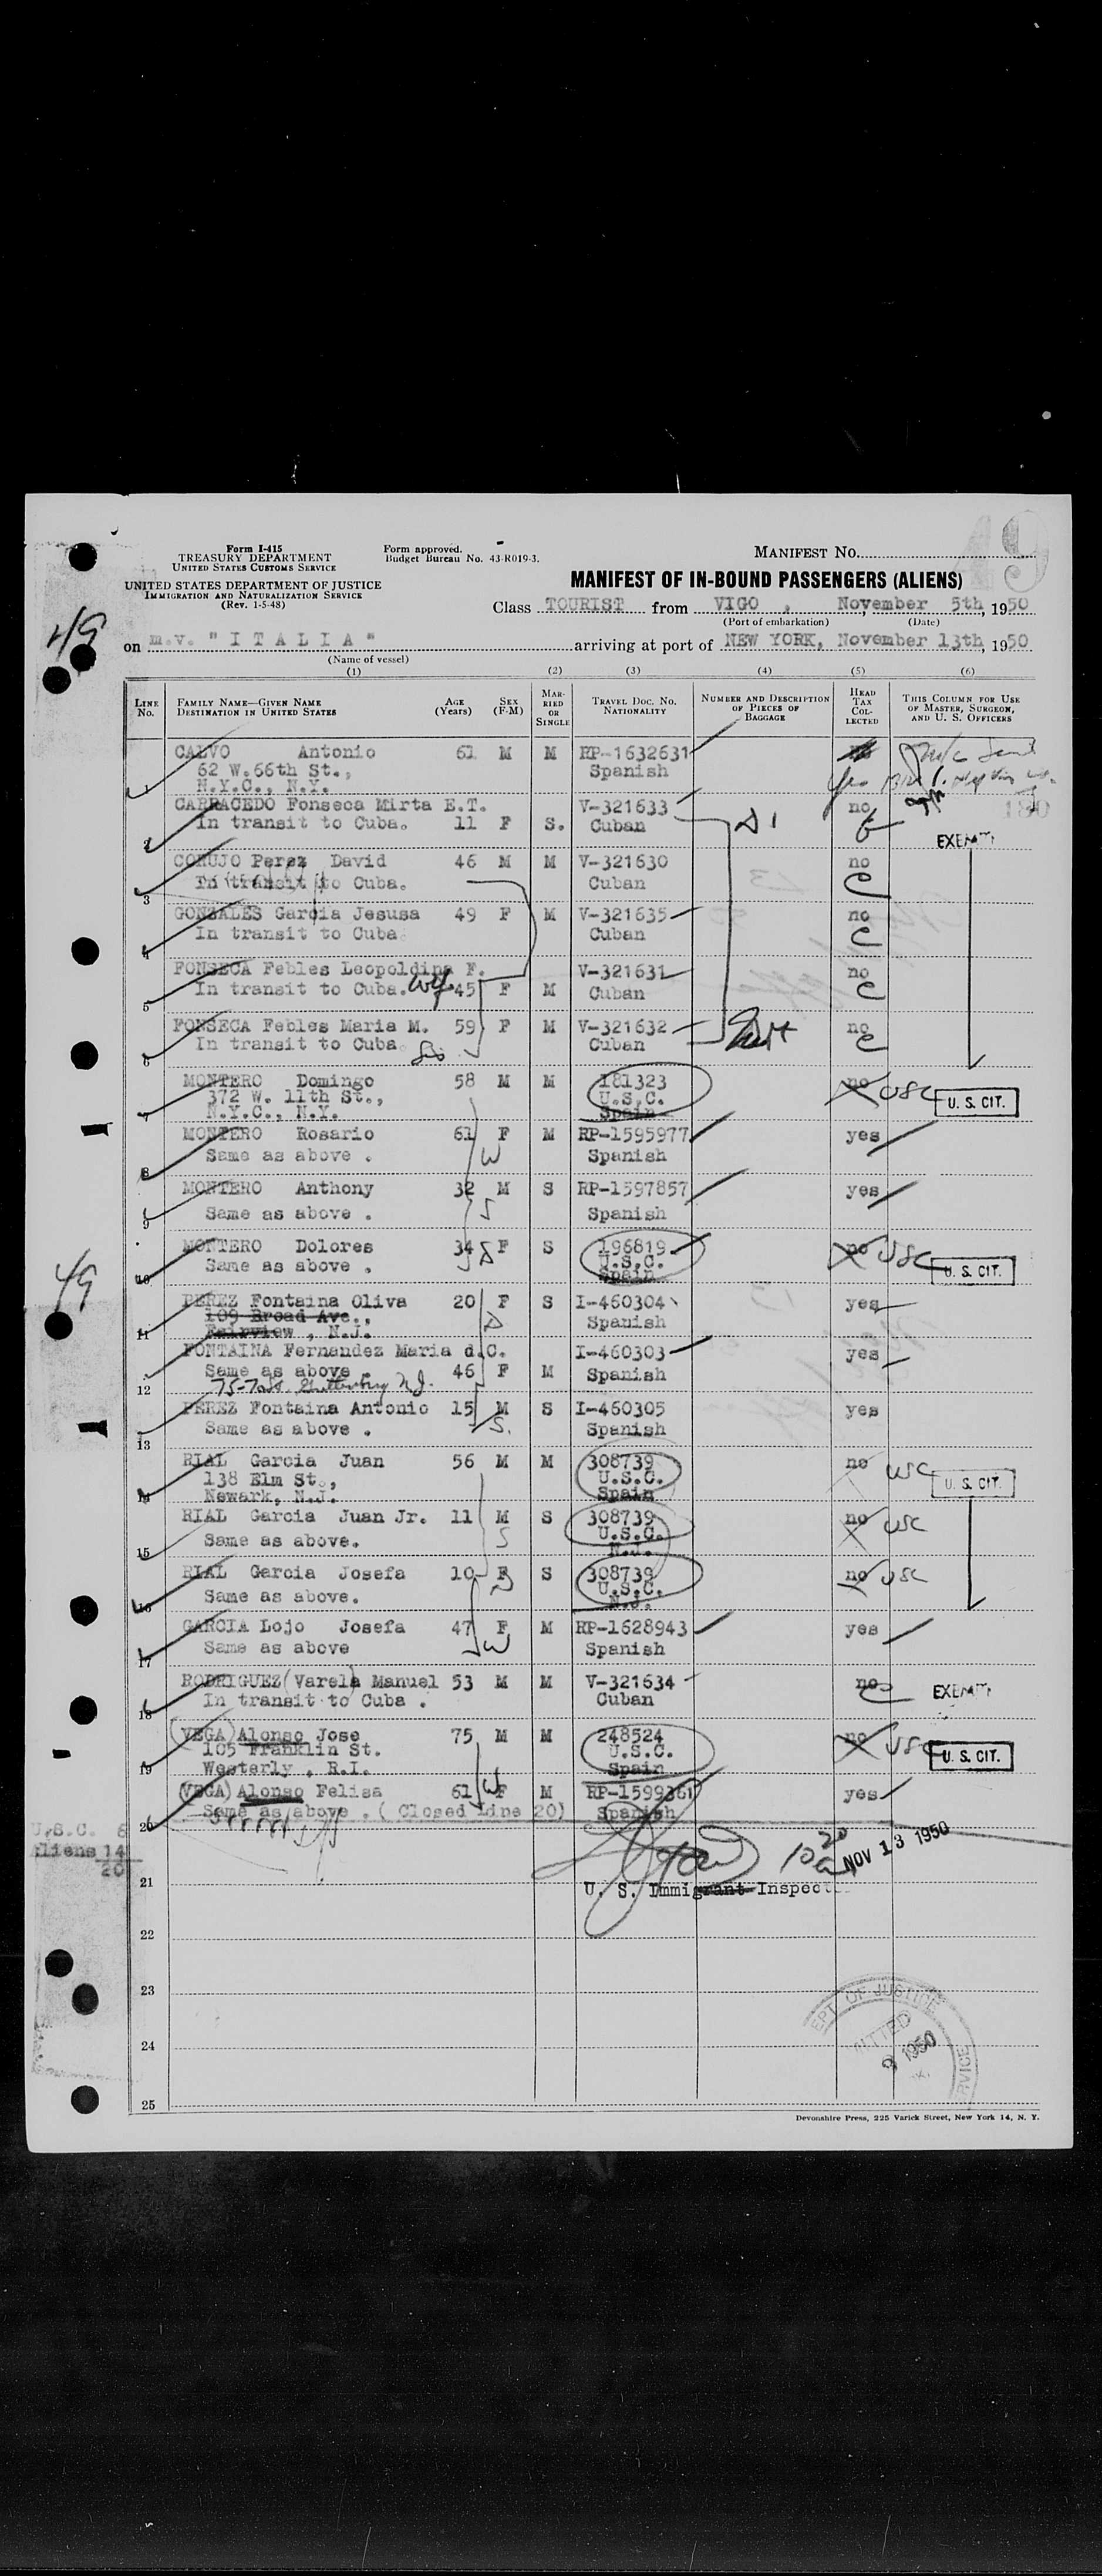 49
Form I-415
TREASURY DEPARTMENT
UNITED STATES CUSTOMS SERVICE
UNITED STATES DEPARTMENT OF JUSTICE
IMMIGRATION AND NATURALIZATION SERVICE
(Rev. 1-5-48)
Form approved.
Budget Bureau No. 43-R019-3.
MANIFEST NO.
MANIFEST OF IN-BOUND PASSENGERS (ALIENS)
Class TOURIST from VIGO , November 5th, 1950
(Port of embarkation) (Date)
49
on m.v. "I T A L I A" arriving at port of NEW YORK, November 13th, 1950
(Name of vessel)
(1) (2) (3) (4) (5) (6)
LINE No. FAMILY NAME—GIVEN NAME DESTINATION IN UNITED STATES AGE (Years) SEX (F-M) MARRIED OR SINGLE TRAVEL DOC. NO. NATIONALITY NUMBER AND DESCRIPTION OF PIECES OF BAGGAGE HEAD TAX COLLECTED THIS COLUMN FOR USE OF MASTER, SURGEON, AND U. S. OFFICERS
1 CALVO Antonio 61 M M RP-1632631
62 W.66th St., Spanish
N.Y.C., N.Y. Yes
2 CARRACEDO Fonseca Mirta E.T. V-321633 no
In transit to Cuba. 11 F S. Cuban
180
EXEMPT
3 CORUJO Perez David 46 M M V-321630 no
In transit to Cuba. Cuban
4 GONZALES Garcia Jesusa 49 F M V-321635 no
In transit to Cuba Cuban
5 FONSECA Febles Leopoldina F. V-321631 no
In transit to Cuba. wf 45 F M Cuban
6 FONSECA Febles Maria M. 59 F M V-321632 no
In transit to Cuba. Cuban
7 MONTERO Domingo 58 M M 181323 no USC
372 W. 11th St., U.S.C. U. S. CIT.
N.Y.C., N.Y. Spain
8 MONTERO Rosario 61 F M RP-1595977 yes
Same as above . W Spanish
9 MONTERO Anthony 32 M S RP-1597857 yes
Same as above . S Spanish
49
10 MONTERO Dolores 34 F S 196819 no USC
Same as above . U.S.C. U. S. CIT.
Spain
11 PEREZ Fontaina Oliva 20 F S I-460304 yes
109 Broad Ave., Spanish
Fairview , N.J.
12 FONTAINA Fernandez Maria d.C. I-460303 yes
Same as above . 46 F M Spanish
13 PEREZ Fontaina Antonio 15 M S I-460305 yes
Same as above . S. Spanish
14 RIAL Garcia Juan 56 M M 308739 no USC
138 Elm St., U.S.C. U. S. CIT.
Newark, N.J. Spain
15 RIAL Garcia Juan Jr. 11 M S 308739 no USC
Same as above. S U.S.C.
N.J.
16 RIAL Garcia Josefa 10 F S 308739 no USC
Same as above. U.S.C.
N.J.
17 GARCIA Lojo Josefa 47 F M RP-1628943 yes
Same as above W Spanish
18 RODRIGUEZ (Varela) Manuel 53 M M V-321634 no
In transit to Cuba . Cuban EXEMPT
19 (VEGA) Alonso Jose 75 M M 248524 no USC
105 Franklin St. U.S.C. U. S. CIT.
Westerly , R.I. Spain
20 (VEGA) Alonso Felisa 61 W F M RP-1599361 yes
Same as above . ( Closed Line 20) Spanish
U.S.C. 6
Aliens 14
20
NOV 13 1950
21 U. S. Immigrant Inspect
22
23
24
25
DEPT OF JUSTICE
1950
Devonshire Press, 225 Varick Street, New York 14, N. Y.